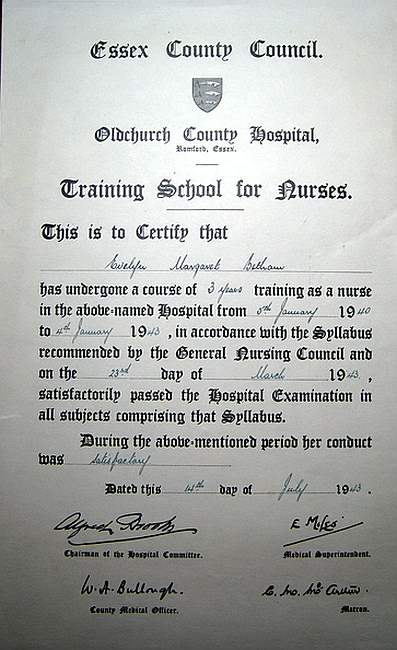 Essex County Council.
Oldchurch County Hospital,
Romford, Essex.
Training School for Nurses.
This is to Certify that
Evelyn Margaret Betham
has undergone a course of 3 years training as a nurse
in the above-named Hospital from 5th January 1940
to 4th January 1943, in accordance with the Syllabus
recommended by the General Nursing Council and
on the 23rd day of March 1943,
satisfactorily passed the Hospital Examination in
all subjects comprising that Syllabus.
During the above-mentioned period her conduct
was satisfactory
Dated this 14th day of July 1943.
Alfred Brooks E Miles
Chairman of the Hospital Committee. Medical Superintendent.
W. A. Bullough.
County Medical Officer. Matron.